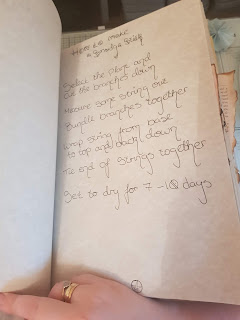 How to make
a Smudge Stick
Select the plant and
cut the branches down
Measure some string out
Bundle branches together
Wrap string from base
to top and back down
Tie end of strings together
Set to dry for 7-10 days